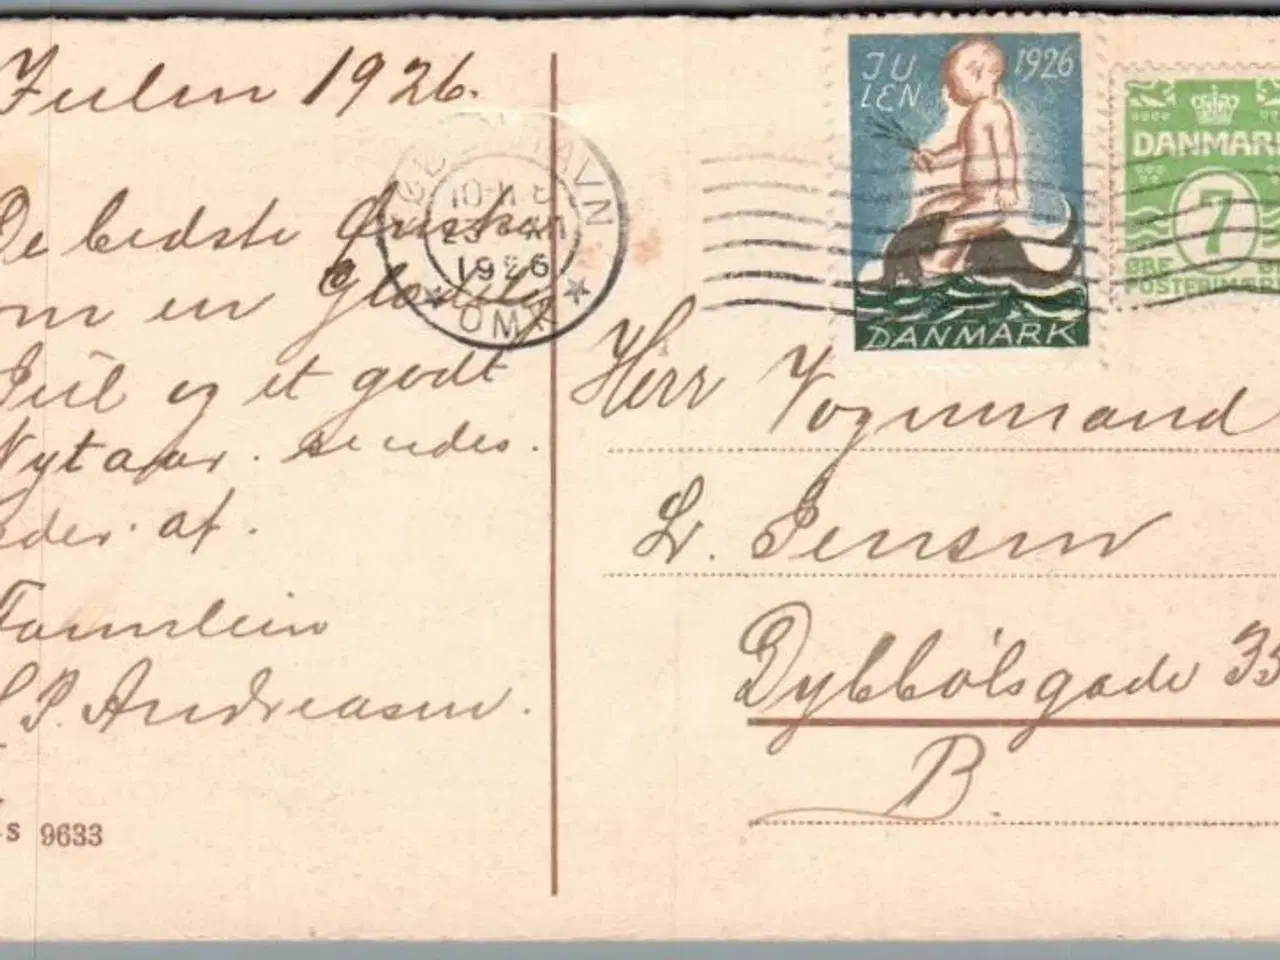 Julen 1926.
De bedste Ønsker
om en Glædelig
Juul og et godt
Nytaar. sendes.
eder. af.
Familien
P. Andreasen.
S 9633
1926
OMK
JU
LEN
1926
DANMARK
DANMARK
7
ØRE
POSTFRIMÆRKE
Herr Vognmand
Lr. Jensen
Dybbølsgade 35
B.